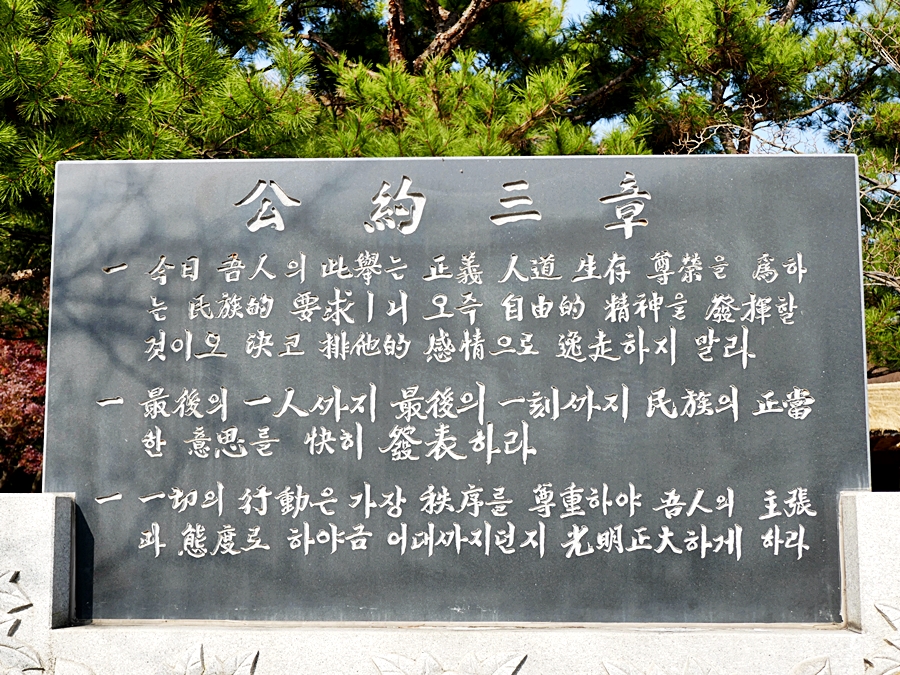 公約三章
一 今日 吾人의 此擧는 正義 人道 生存 尊榮을 爲하
는 民族的 要求ㅣ니 오즉 自由的 精神을 發揮할
것이오 決코 排他的 感情으로 逸走하지 말라
一 最後의 一人까지 最後의 一刻까지 民族의 正當
한 意思를 快히 發表하라
一 一切의 行動은 가장 秩序를 尊重하야 吾人의 主張
과 態度로 하야금 어대까지던지 光明正大하게 하라